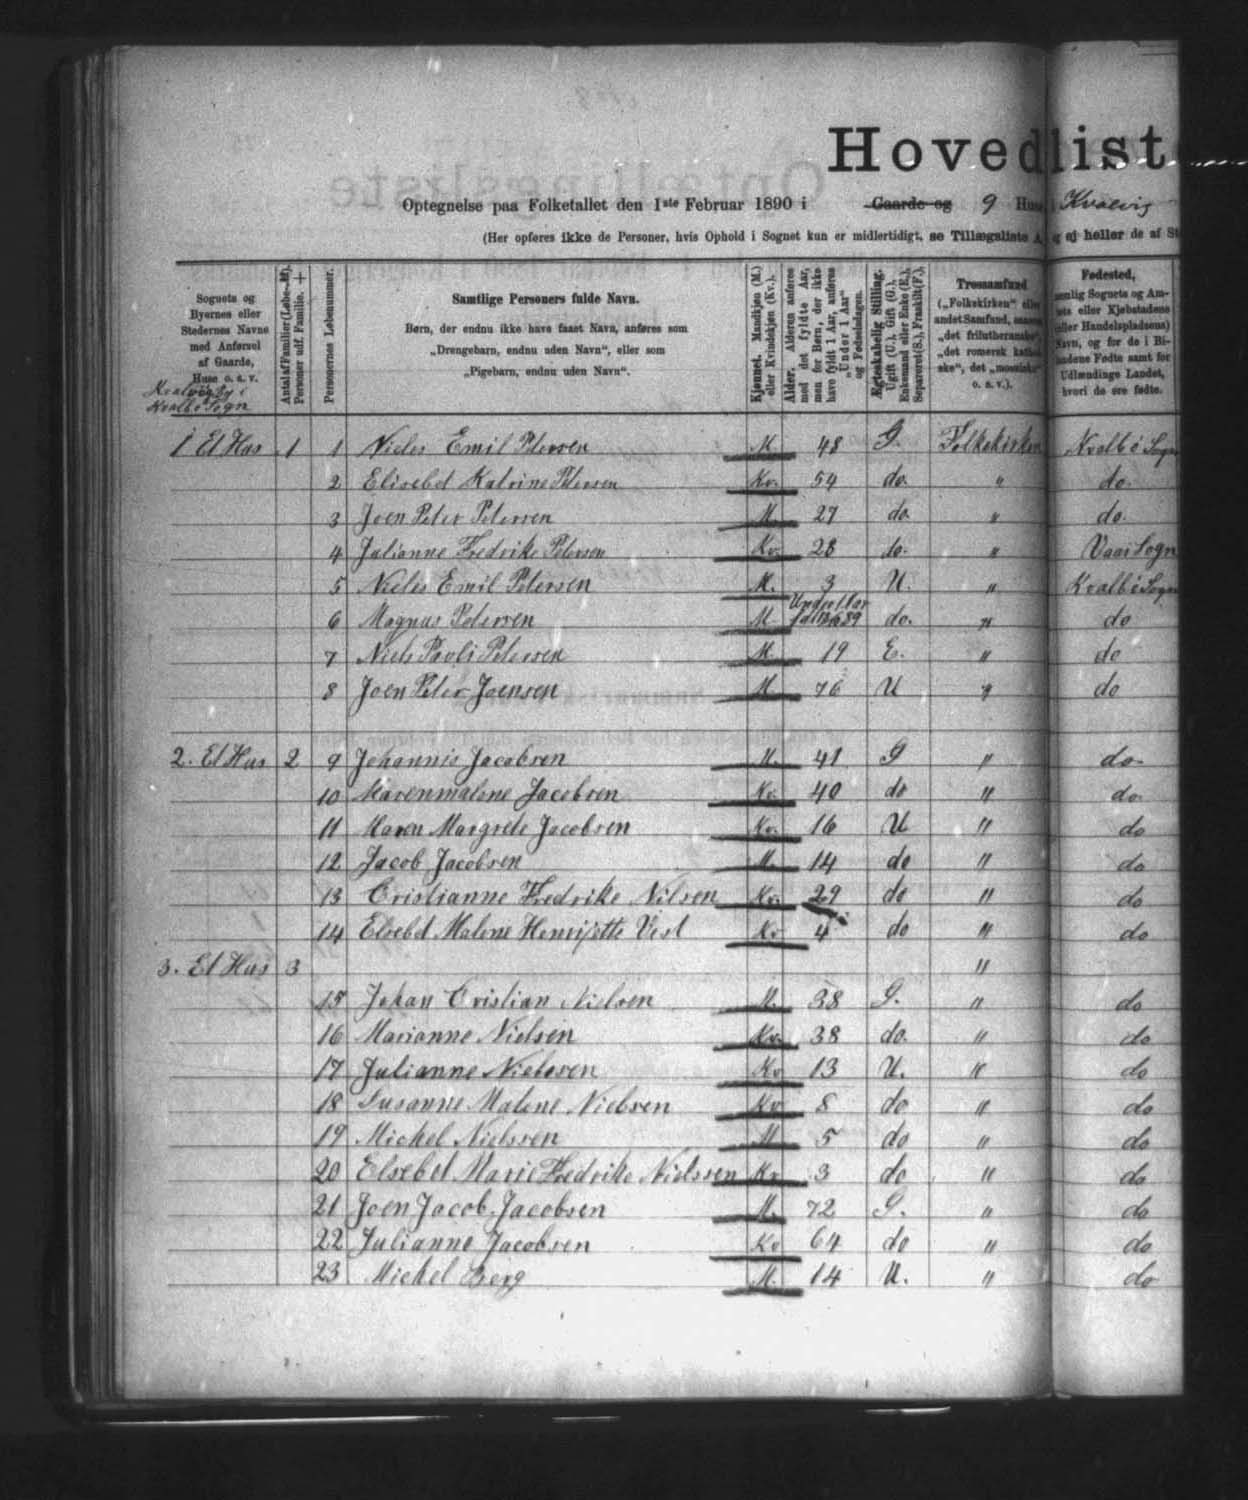 Hovedlist
Optegnelse paa Folketallet den 1ste Februar 1890 i Gaarde og 9 Huse i Kvalvig
(Her opføres ikke de Personer, hvis Ophold i Sognet kun er midlertidigt, se Tillægsliste A, og ej heller de af
Sognets og Byernes eller Stedernes Navne med Anførsel af Gaarde, Huse o. s. v.
Kvalvigby i
Kvalbø Sogn
Antal af Familier (Løbe-Nr). Personer udf. Familie. +
Personernes Løbenummer.
Samtlige Personers fulde Navn.
Børn, der endnu ikke have faaet Navn, anføres som
„Drengebarn, endnu uden Navn“, eller som
„Pigebarn, endnu uden Navn“.
Kjønnet. Mandkjøn (M.) eller Kvindekjøn (Kv.).
Alder. Alderen anføres med det fyldte Aar, men for Børn, der ikke have fyldt 1 Aar, anføres „Under 1 Aar“ og Fødselsdagen.
Ægteskabelig Stilling. Ugift (U.), Gift (G.), Enkemand eller Enke (E.), Separeret (S.), Fraskilt (F.).
Trossamfund
(„Folkekirken“ eller andet Samfund, saasom „det frilutheranske“, „det romersk katholske“, det „mosaiske“ o. s. v.).
Fødested,
nemlig Sognets og Amtets eller Kjøbstadens (eller Handelspladsens) Navn, og for de i Bilandene Fødte samt for Udlændinge Landet, hvori de ere fødte.
1 Et Hus 1 1 Nicles Emil Petersen M. 48 G. Folkekirken Kvalbø Sogn
2 Elisebet Katrine Petersen Kv. 54 do. " do.
3 Joen Peter Petersen M. 27 do " do.
4 Julianne Fredrike Petersen Kv. 28 do. " Vaai Sogn
5 Nicles Emil Petersen M. 3 U. " Kvalbø Sogn
6 Magnus Petersen M. Under 1 Aar do. " do
7 Niels Pavli Petersen M. 19 E. " do
8 Joen Peter Joensen M. 76 U " do
2. Et Hus 2 9 Johannis Jacobsen M. 41 G " do
10 Marenmalene Jacobsen Kv. 40 do " do.
11 Maren Margrete Jacobsen Kv. 16 U " do
12 Jacob Jacobsen M. 14 do " do
13 Cristianne Fredrike Nilsen Kv. 29 do " do
14 Elsebet Malene Henrijette Vest Kv 4 do " do
3. Et Hus 3 "
15 Johan Cristian Nielsen M. 38 G. " do
16 Marianne Nielsen Kv. 38 do. " do
17 Julianne Nielssen Kv 13 U. " do
18 Susanne Malene Nielssen Kv 8 do " do
19 Michel Nielssen M 5 do " do
20 Elsebet Marie Fredrike Nielssen Kv 3 do " do
21 Joen Jacob Jacobsen M. 72 G. " do
22 Julianne Jacobsen Kv 64 do " do
23 Michel Berg M. 14 U. " do